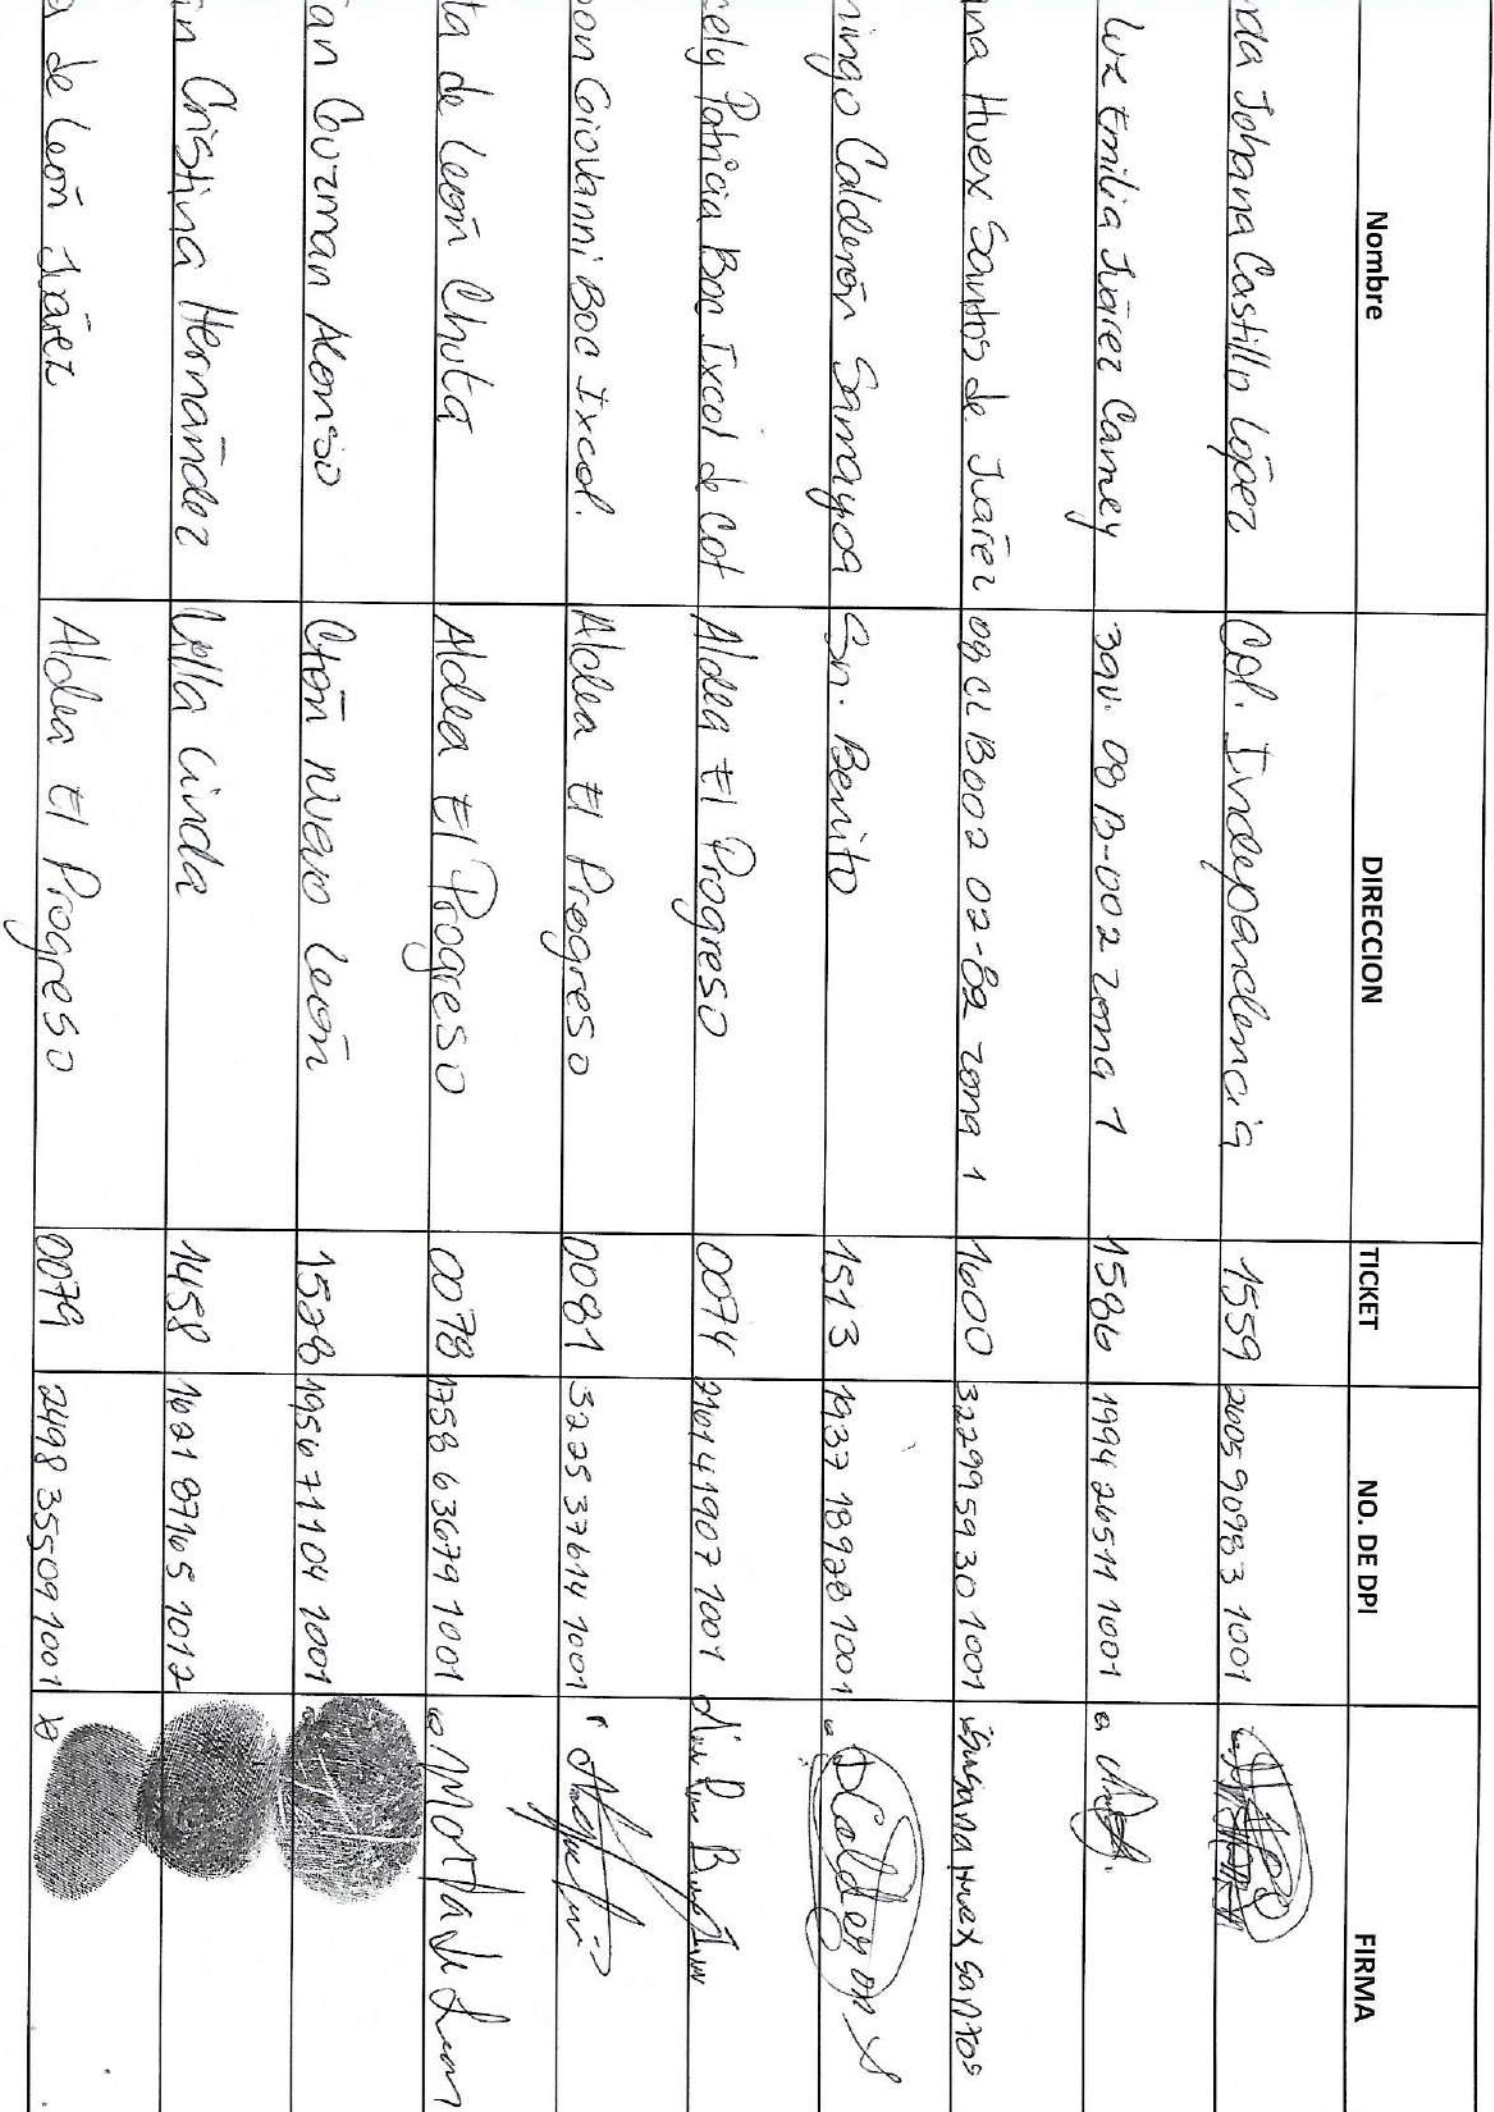 Nombre DIRECCION TICKET NO. DE DPI FIRMA
nda Johana Castillo López Col. Independencia 1559 2605 90983 1001
Luz Emilia Juárez Camey 3av. 08 B-002 zona 1 1586 1994 26511 1001
na Huex Santos de Juárez 08 CL B002 02-82 zona 1 1600 3229959301001 Susana Huex Santos
mingo Calderón Samayoa Sn. Benito 1513 1937 18928 1001 DCalderon S
cely Patricia Boc Ixcol de Cot Aldea El Progreso 0074 2161419071001
on Giovanni Boc Ixcol. Aldea El Progreso 0081 3225 37614 1001
ta de León Chuta Aldea El Progreso 0078 1758 63679 1001 Marta de Leon
an Guzman Alonso Ctón Nuevo León 1528 1956 71104 1001
in Cristina Hernández Villa Linda 1458 1621 87165 1012
a de León Juárez Aldea El Progreso 0079 2498 35509 1001